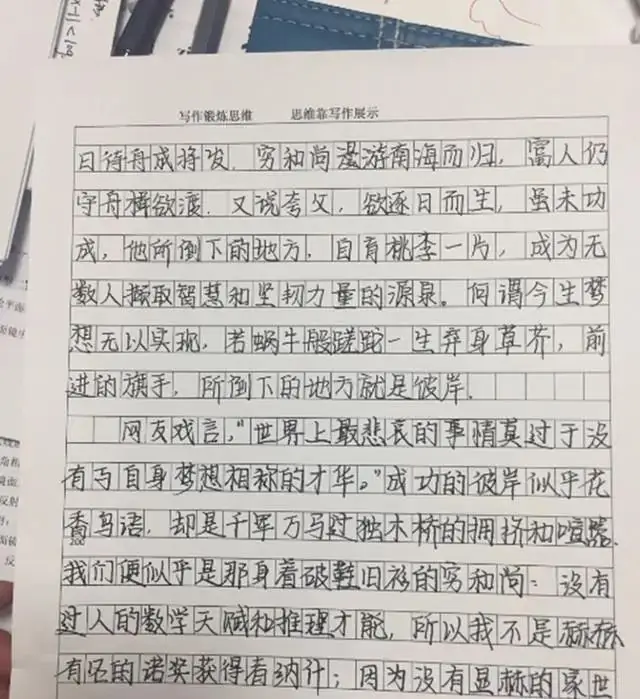 写作锻炼思维 思维靠写作展示
日待舟成将发,穷和尚遨游南海而归,富人仍
守舟樯欲渡。又说夸父,欲逐日而生,虽未功
成,他所倒下的地方,自育桃李一片,成为无
数人撷取智慧和坚韧力量的源泉。何谓今生梦
想无以实现,若蜗牛般蹉跎一生弃身草芥,前
进的旗手,所倒下的地方就是彼岸。
网友戏言,“世界上最悲哀的事情莫过于没
有与自身梦想相称的才华。”成功的彼岸似乎花
香鸟语,却是千军万马过独木桥的拥挤和喧嚣。
我们便似乎是那身着破鞋旧衫的穷和尚:没有
过人的数学天赋和推理才能,所以我不是赫赫
有名的诺奖获得者纳什;因为没有显赫的家世